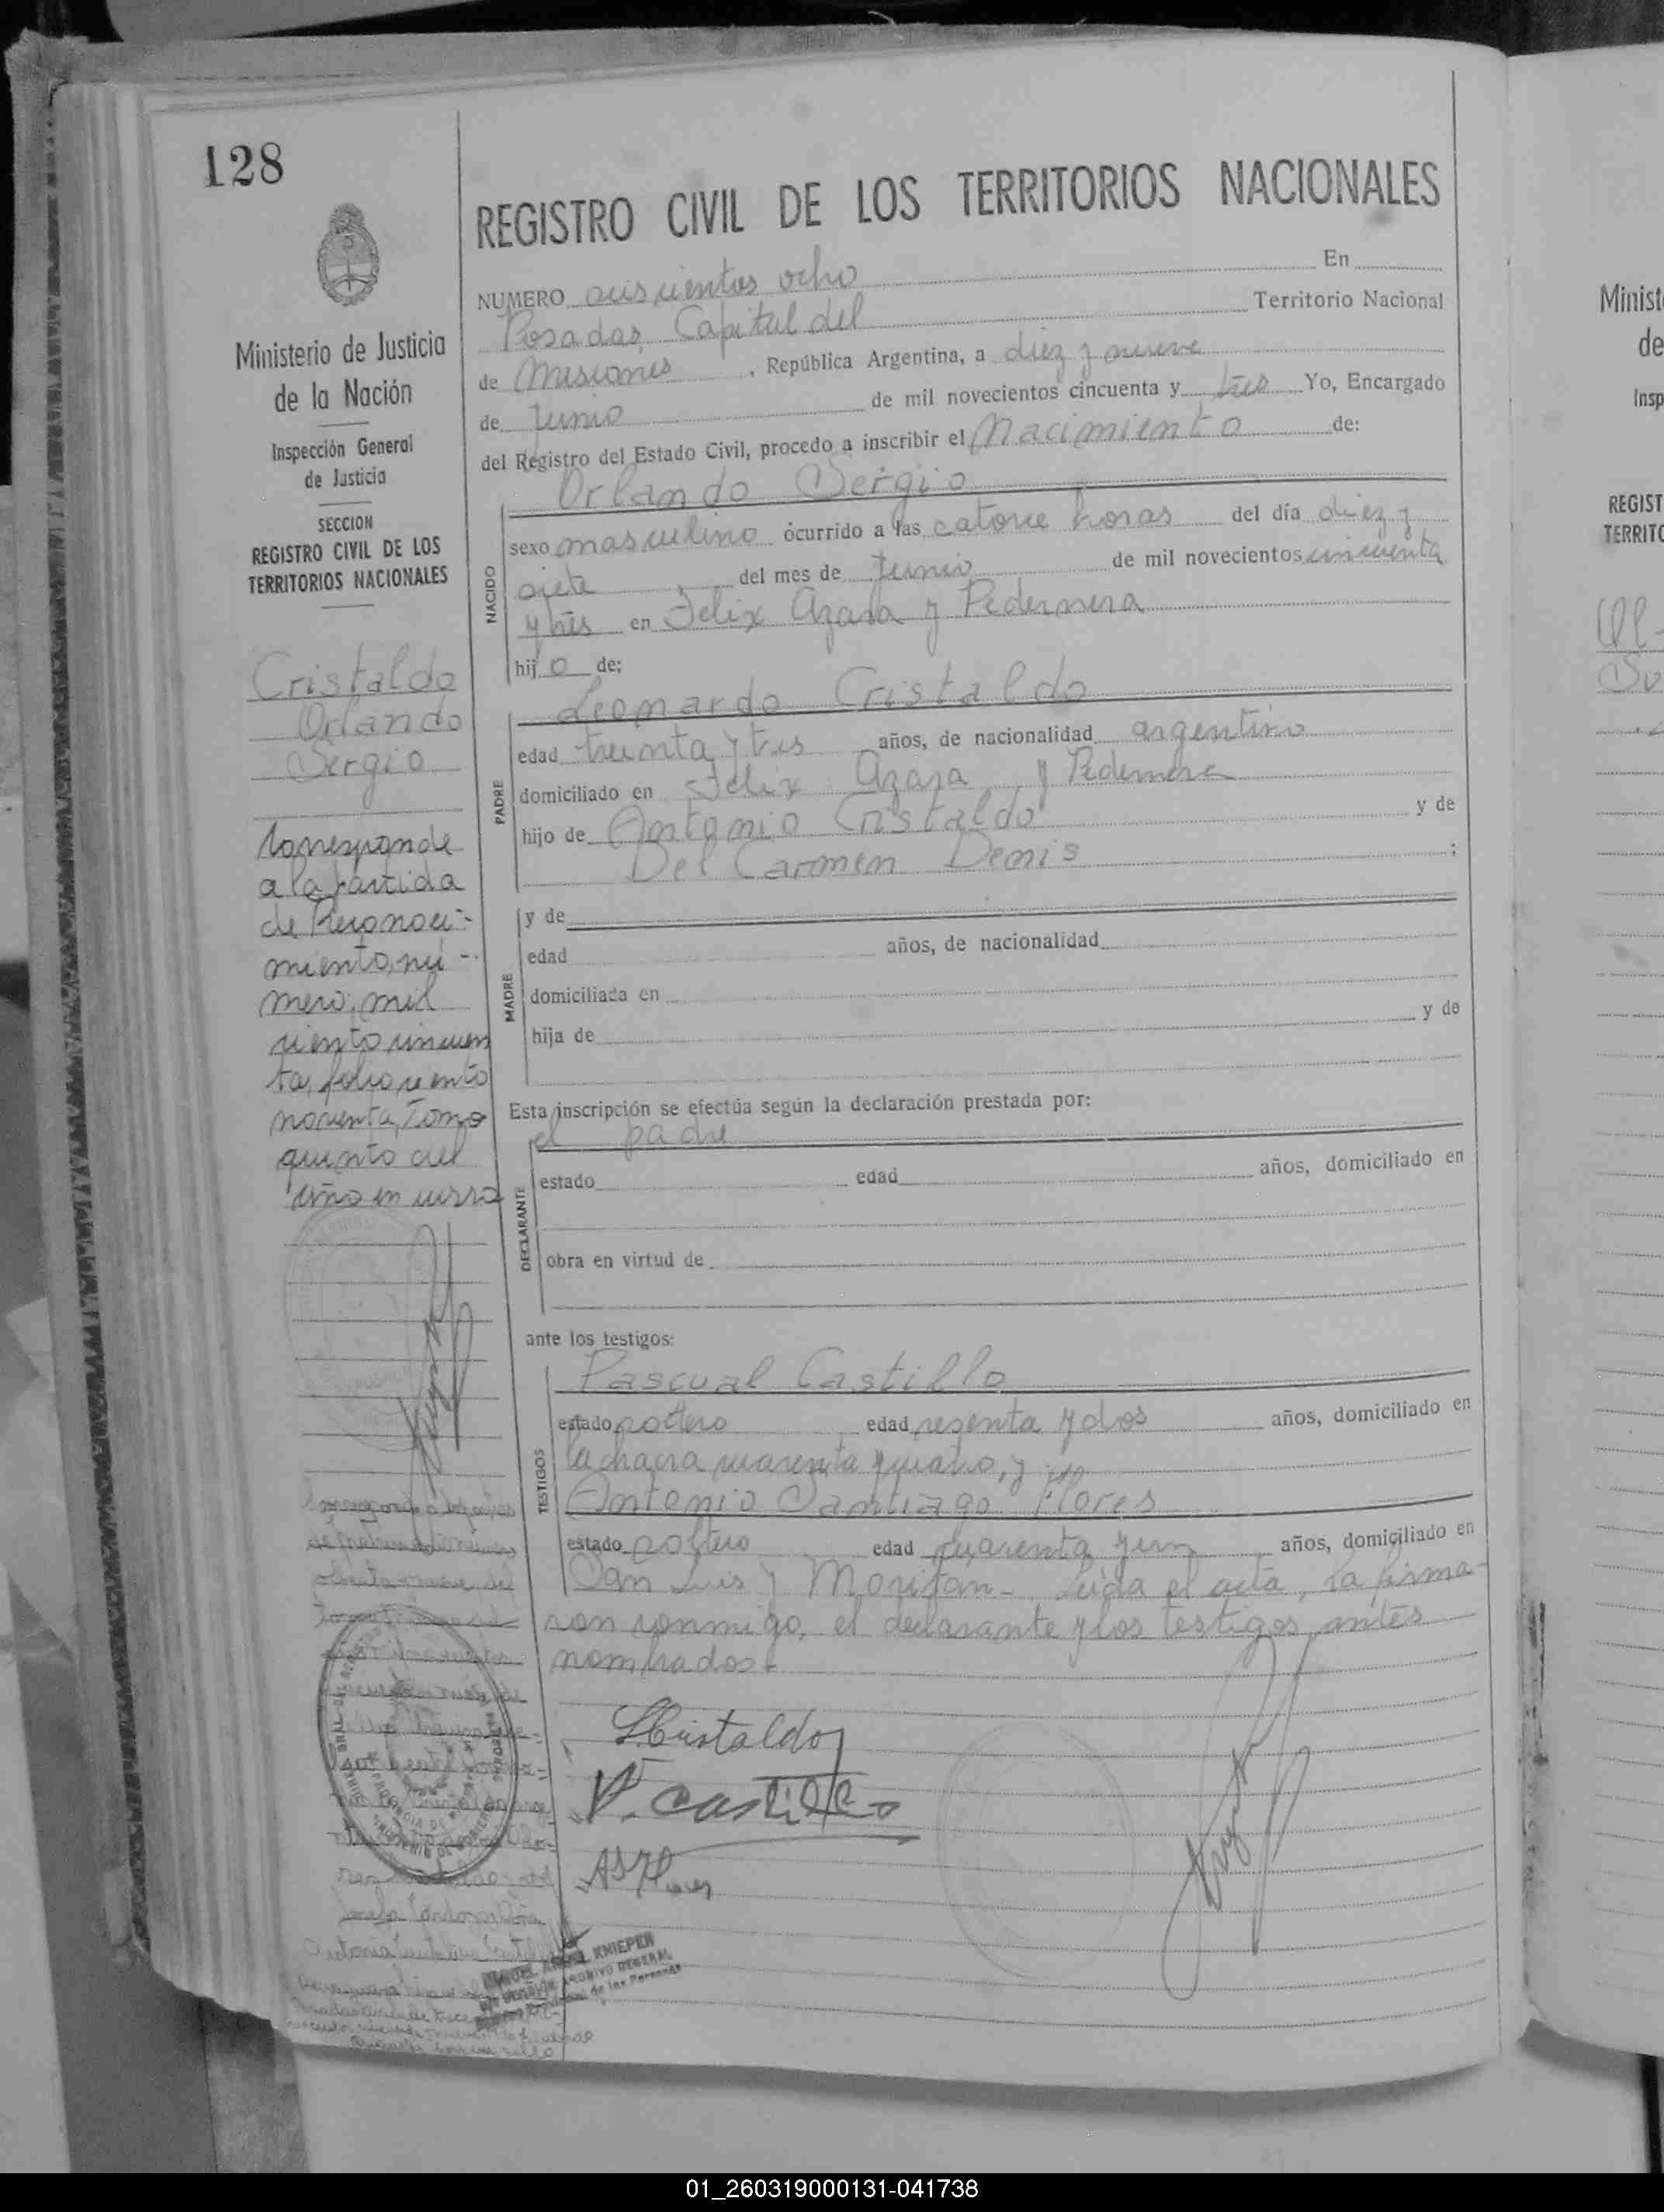 128
Ministerio de Justicia
de la Nación
Inspección General
de Justicia
SECCION
REGISTRO CIVIL DE LOS
TERRITORIOS NACIONALES
Cristaldo
Orlando
Sergio
Corresponde
a la partida
de Reconoci-
miento, nú-
mero, mil
ciento cincuen
ta, folio ciento
noventa, Tomo
quinto del
año en curso
REGISTRO CIVIL DE LOS TERRITORIOS NACIONALES
NUMERO seiscientos ocho En
Posadas, Capital del Territorio Nacional
de Misiones, República Argentina, a diez y nueve
de Junio de mil novecientos cincuenta y tres Yo, Encargado
del Registro del Estado Civil, procedo a inscribir el Nacimiento de:
Orlando Sergio
NACIDO
sexo masculino ocurrido a las catorce horas del día diez y
siete del mes de Junio de mil novecientos cincuenta
y tres en Felix Azara y Pedernera
hijo de:
PADRE
Leonardo Cristaldo
edad treinta y tres años, de nacionalidad argentino
domiciliado en Felix Azara y Pedernera
hijo de Antonio Cristaldo y de
Del Carmen Denis ;
MADRE
y de
edad años, de nacionalidad
domiciliada en
hija de y de
Esta inscripción se efectúa según la declaración prestada por:
el padre
DECLARANTE
estado edad años, domiciliado en
obra en virtud de
ante los testigos:
TESTIGOS
Pascual Castillo
estado soltero edad sesenta y dos años, domiciliado en
la chacra cuarenta y cuatro, y
Antonio Santiago Flores
estado soltero edad cuarenta y un años, domiciliado en
San Luis y Moritan - Leída el acta, la firma-
ron conmigo, el declarante y los testigos antes
nombrados-
LCristaldo
P. Castillo
AS Flores
KNIEPER
ARCHIVO GENERAL
de las Personas
Minist
de
Insp
REGIST
TERRITO
01_260319000131-041738